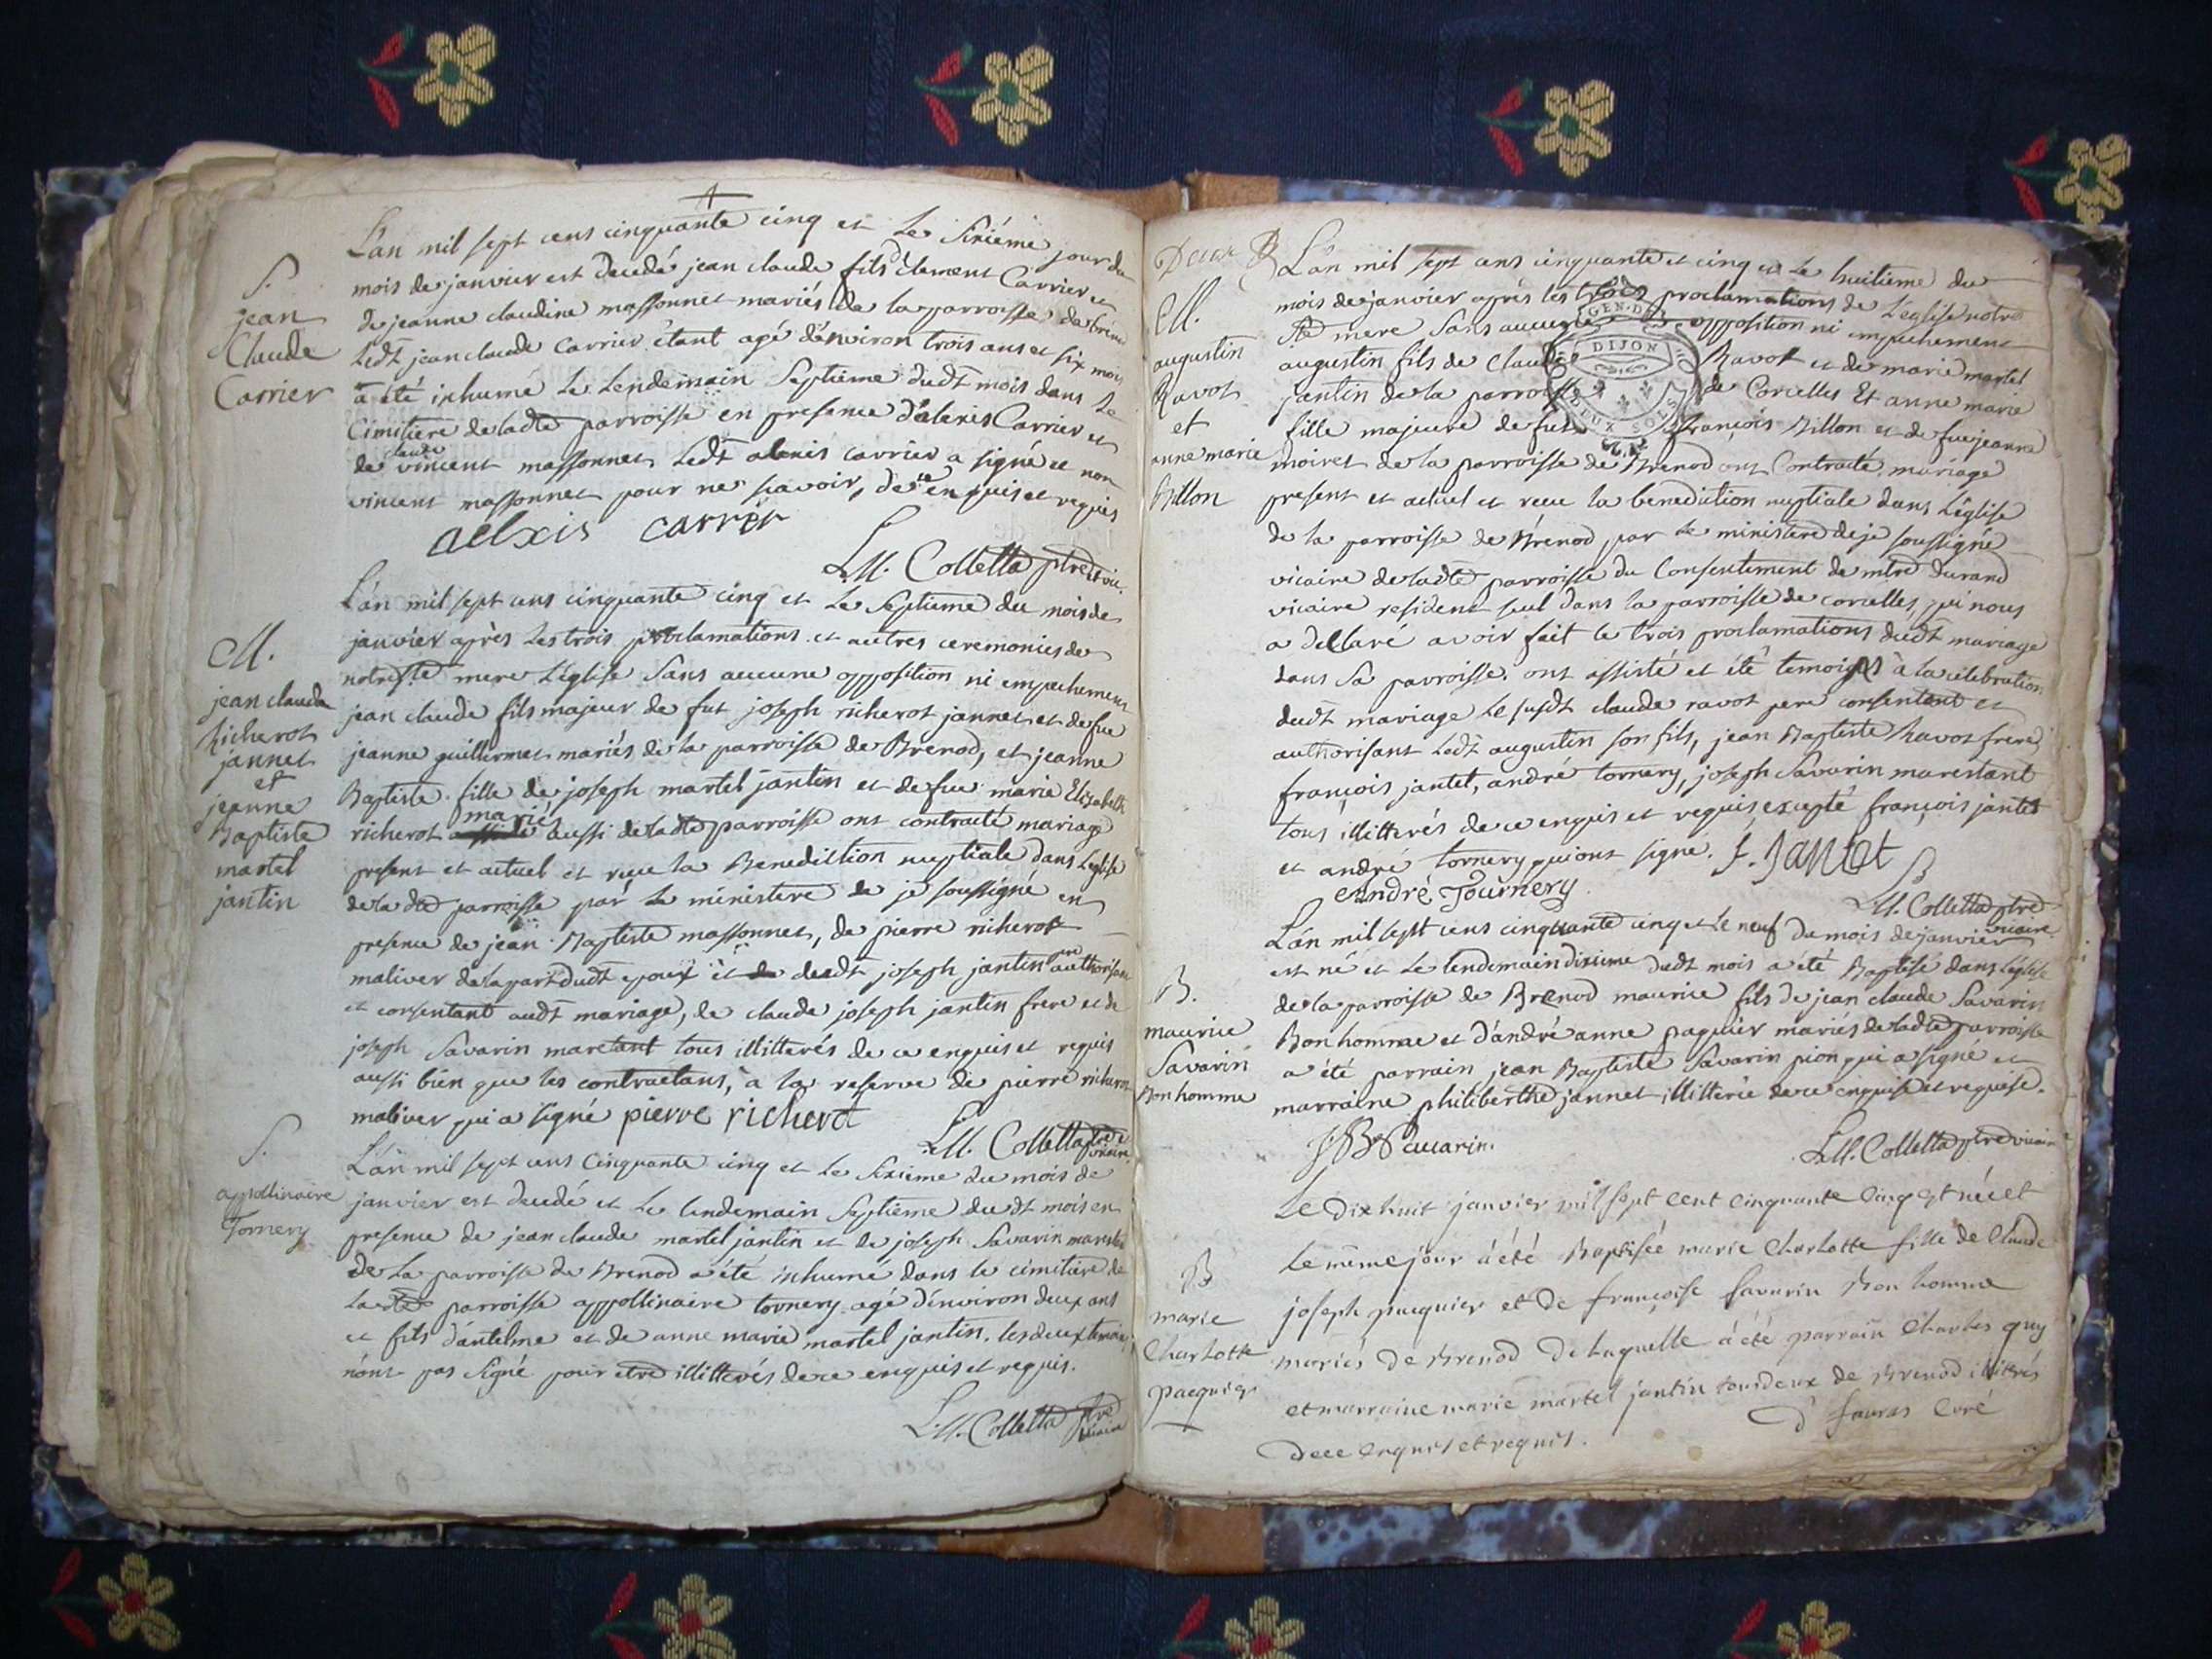 L'an mil sept cens cinquante cinq et le sixiéme jour du
mois de janvier est decedé jean claude fils d clement Carrier et
de jeanne claudine massonnet mariés de la parroisse de breno
ledt jean claude Carrier étant agé d'environ trois ans et six mois
a été inhumé le lendemain septieme dudt mois dans le
Cimitiere de ladte parroisse en presence d'alexis Carrier et
claude
de vincent massonnet ledt alexis carrier a signé et non
vincent massonnet pour ne sçavoir, de ce enquis et requis
aelxis carrier
L.M. Colletta ptre et vic.
S.
jean
Claude
Carrier
L'an mil sept cens cinquante cinq et le septieme du mois de
janvier après les trois proclamations et autres ceremonies de
notre ste mere L'église sans aucune opposition ni empechement
jean claude fils majeur de fut joseph richerot jannet et de fue
jeanne guillermet mariés de la parroisse de Brenod, et jeanne
Baptiste fille de joseph martel jantin et de fue marie Elizabeth
mariés
richerot aussi de ladte parroisse ont contracté mariage
present et actuel et reçu la Benediction nuptiale dans L'église
de la dte parroisse par le ministere de je soussigné en
presence de jean Baptiste massonnet, de pierre richerot
maliver de la part dudt epoux et dudt joseph jantin pere authorisant
et consentant audt mariage, de claude joseph jantin frere et de
joseph Savarin maretant tous illitterés de ce enquis et requis
aussi bien que les contractans, a la reserve de pierre richerot
maliver qui a signé pierre richerot
L.M. Colletta ptre vicaire
M.
jean claude
Richerot
jannet
et
jeanne
Baptiste
martel
jantin
L'an mil sept cens Cinquante cinq et le sixieme du mois de
janvier est decedé et le lendemain septieme dudt mois en
presence de jean claude martel jantin et de joseph Savarin maretant
de la parroisse de Brenod a été inhumé dans le cimitiere de
ladte parroisse appollinaire tornery agé d'environ deux ans
et fils d'antelme et de anne marie martel jantin. les deux temoins
n'ont pas signé pour etre illitterés de ce enquis et requis.
L.M. Colletta ptre vicaire
S.
appollinaire
Tornery
Deux
L'an mil sept cens cinquante et cinq et le huitieme du
mois de janvier après les trois proclamations de L'église notre
Ste mere sans aucune opposition ni empechement
augustin fils de Claude Ravot et de marie martel
jantin de la parroisse de Corcelles Et anne marie
fille majeure de fut françois Billon et de fue jeanne
moiret de la parroisse de Brenod ont Contracté mariage
present et actuel et receu la benediction nuptiale dans L'église
de la parroisse de Brenod par le ministere de je soussigné
vicaire de ladte parroisse du Consentement de mtre Durand
vicaire resident seul dans la parroisse de corcelles, qui nous
a declaré avoir fait le trois proclamations dudt mariage
dans sa parroisse. ont assisté et été temoigns à la célebration
dudt mariage le susdt claude ravot pere consentant et
authorisant ledt augustin son fils, jean Baptiste Ravot frere,
françois jantet, andré tornery, joseph Savarin marestant
tous illitterés de ce enquis et requis, excepté françois jantet
et andré tornery qui ont signé. f. Jantet
André Tournery
L.M. Colletta ptre vicaire
M.
augustin
Ravot
et
anne marie
Billon
GEN. DE
DIJON
DEUX SOLS
L'an mil sept cens cinquante cinq et le neuf du mois de janvier
est né et le lendemain dixieme dudt mois a été Baptisé dans L'église
de la parroisse de Brenod maurice fils de jean claude Savarin
Bonhomme et d'andré anne paquier mariés de ladte parroisse
a été parrain jean Baptiste Savarin pion qui a signé et
marraine philiberthe jannet, illiterée de ce enquise et requise.
JB Savarin.
L.M. Colletta ptre vicaire
B.
maurice
Savarin
Bonhomme
Le Dix huit janvier mil sept cent cinquante Cinq est née et
le même jour à été Baptisée marie Charlotte fille de Claude
joseph pacquier et De françoise Savarin Bon homme
mariés De Brenod De laquelle à été parrain Charles guy
et marraine marie martel jantin tous deux de Brenod illitrés
De ce Enquis et requis.
D' favras Curé
B
marie
Charlotte
pacquier